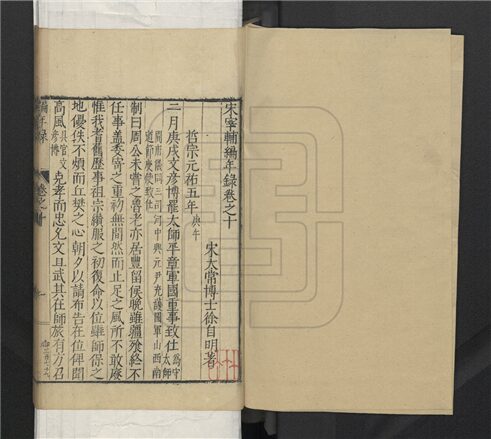 宋宰輔編年錄卷之十
宋太常博士徐自明著
哲宗元祐五年庚午
二月庚戌文彥博罷太師平章軍國重事致仕為守太師
開府儀同三司河中興元尹充護國軍山西南道節度使致仕
制曰周公未嘗之魯老亦居豐留侯晚雖彊飱終不
任事蓋委寄之重初無間然而止足之風所不敢廢
惟我耆舊歷事祖宗纘服之初復命以位雖師保之
地優佚不煩而丘樊之心朝夕以請布告在位俾聞
高風具官文彥博克孝而忠允文且武其在師旅有方召
編年錄
卷之十
一